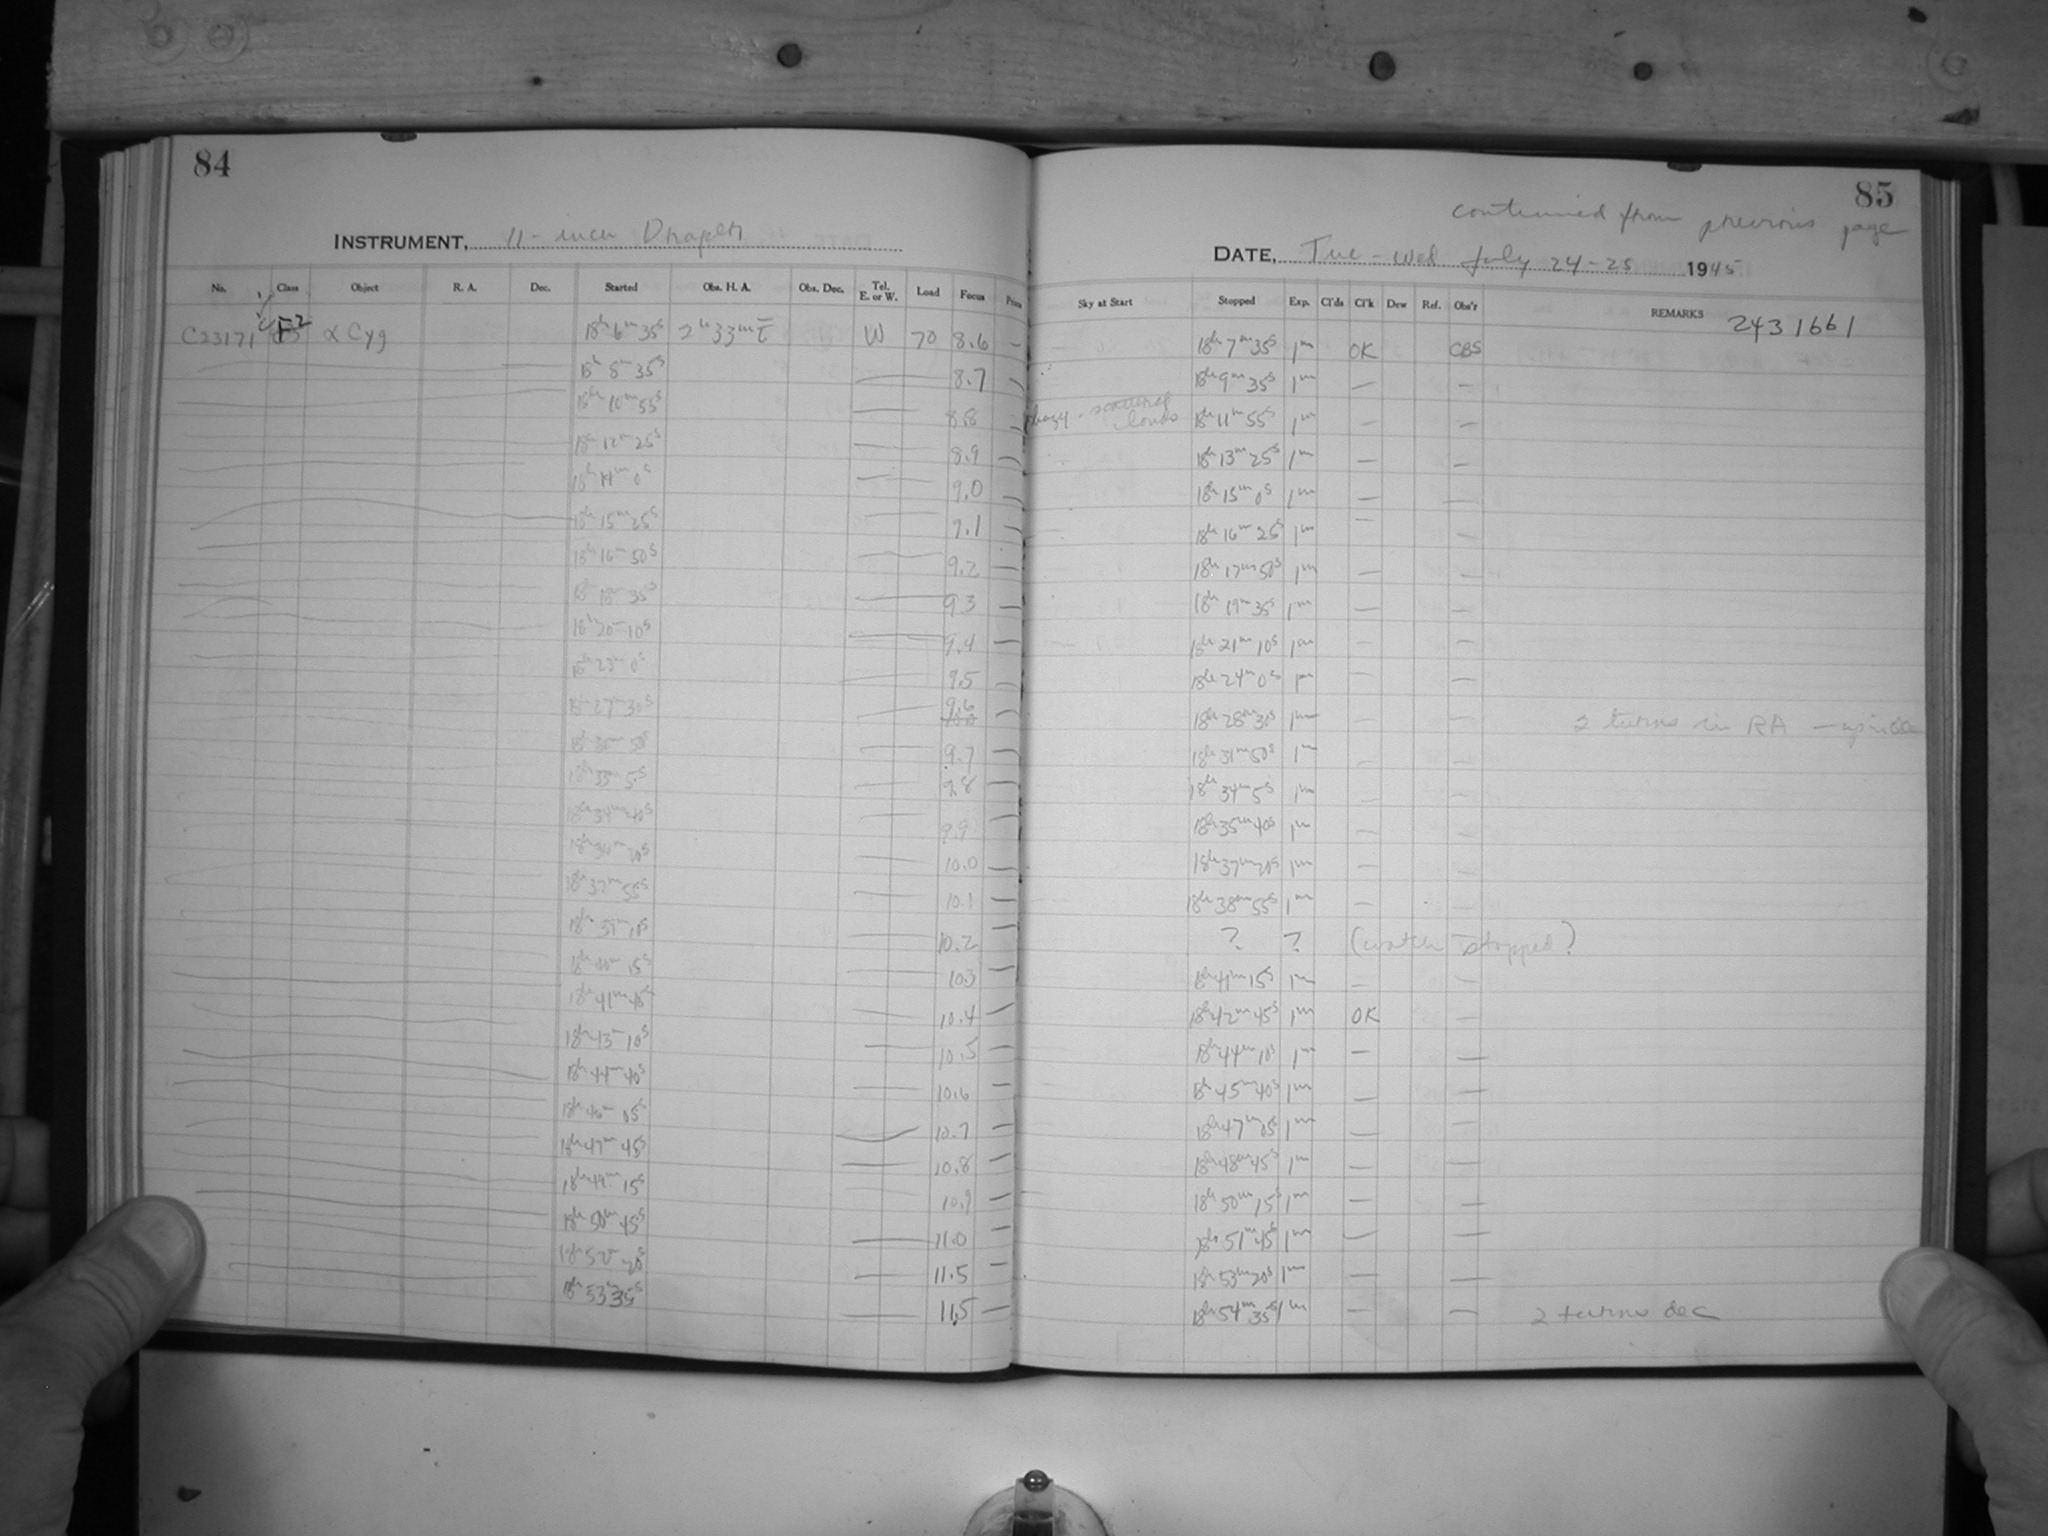 84
INSTRUMENT, 11-inch Draper
No. Class Object R. A. Dec. Started Obs. H. A. Obs. Dec. Tel. E. or W. Load Focus
C23171 F2 α Cyg 18h 6m 35s 2h 33m E W 70 8.6 —
18h 8m 35s — 8.7 —
18h 10m 55s — 8.8 —
18h 12m 25s — 8.9 —
18h 14m 0s — 9.0 —
18h 15m 25s — 9.1 —
18h 16m 50s — 9.2 —
18h 18m 35s — 9.3 —
18h 20m 10s — 9.4 —
18h 23m 0s — 9.5 —
18h 27m 30s — 9.6 —
18h 30m 50s — 9.7 —
18h 33m 5s — 9.8 —
18h 34m 40s — 9.9 —
18h 36m 20s — 10.0 —
18h 37m 55s — 10.1 —
18h 39m — 10.2 —
18h 40m 15s — 10.3 —
18h 41m 45s — 10.4 —
18h 43m 10s — 10.5 —
18h 44m 40s — 10.6 —
18h 46m 05s — 10.7 —
18h 47m 45s — 10.8 —
18h 49m 15s — 10.9 —
18h 50m 45s — 11.0 —
18h 52m 20s — 11.5 —
18h 53m 35s — 11.5 —
85
continued from previous page
DATE, Tue - Wed July 24-25 1945
Sky at Start Stopped Exp. Cl'ds Cl'k Dew Ref. Obs'r REMARKS 2431661
18h 7m 35s 1m OK CBS
18h 9m 35s 1m — —
hazy - scattered clouds 18h 11m 55s 1m — —
18h 13m 25s 1m — —
18h 15m 0s 1m — —
18h 16m 25s 1m — —
18h 17m 50s 1m — —
18h 19m 35s 1m — —
18h 21m 10s 1m — —
18h 24m 0s 1m — —
18h 28m 30s 1m — — 2 turns in RA —
18h 31m 50s 1m — —
18h 34m 5s 1m — —
18h 35m 40s 1m — —
18h 37m 20s 1m — —
18h 38m 55s 1m — —
? ? (watch stopped?
18h 41m 15s 1m — —
18h 42m 45s 1m OK —
18h 44m 10s 1m — —
18h 45m 40s 1m — —
18h 47m 05s 1m — —
18h 48m 45s 1m — —
18h 50m 15s 1m — —
18h 51m 45s 1m — —
18h 53m 20s 1m — —
18h 54m 35s 1m — — 2 turns dec